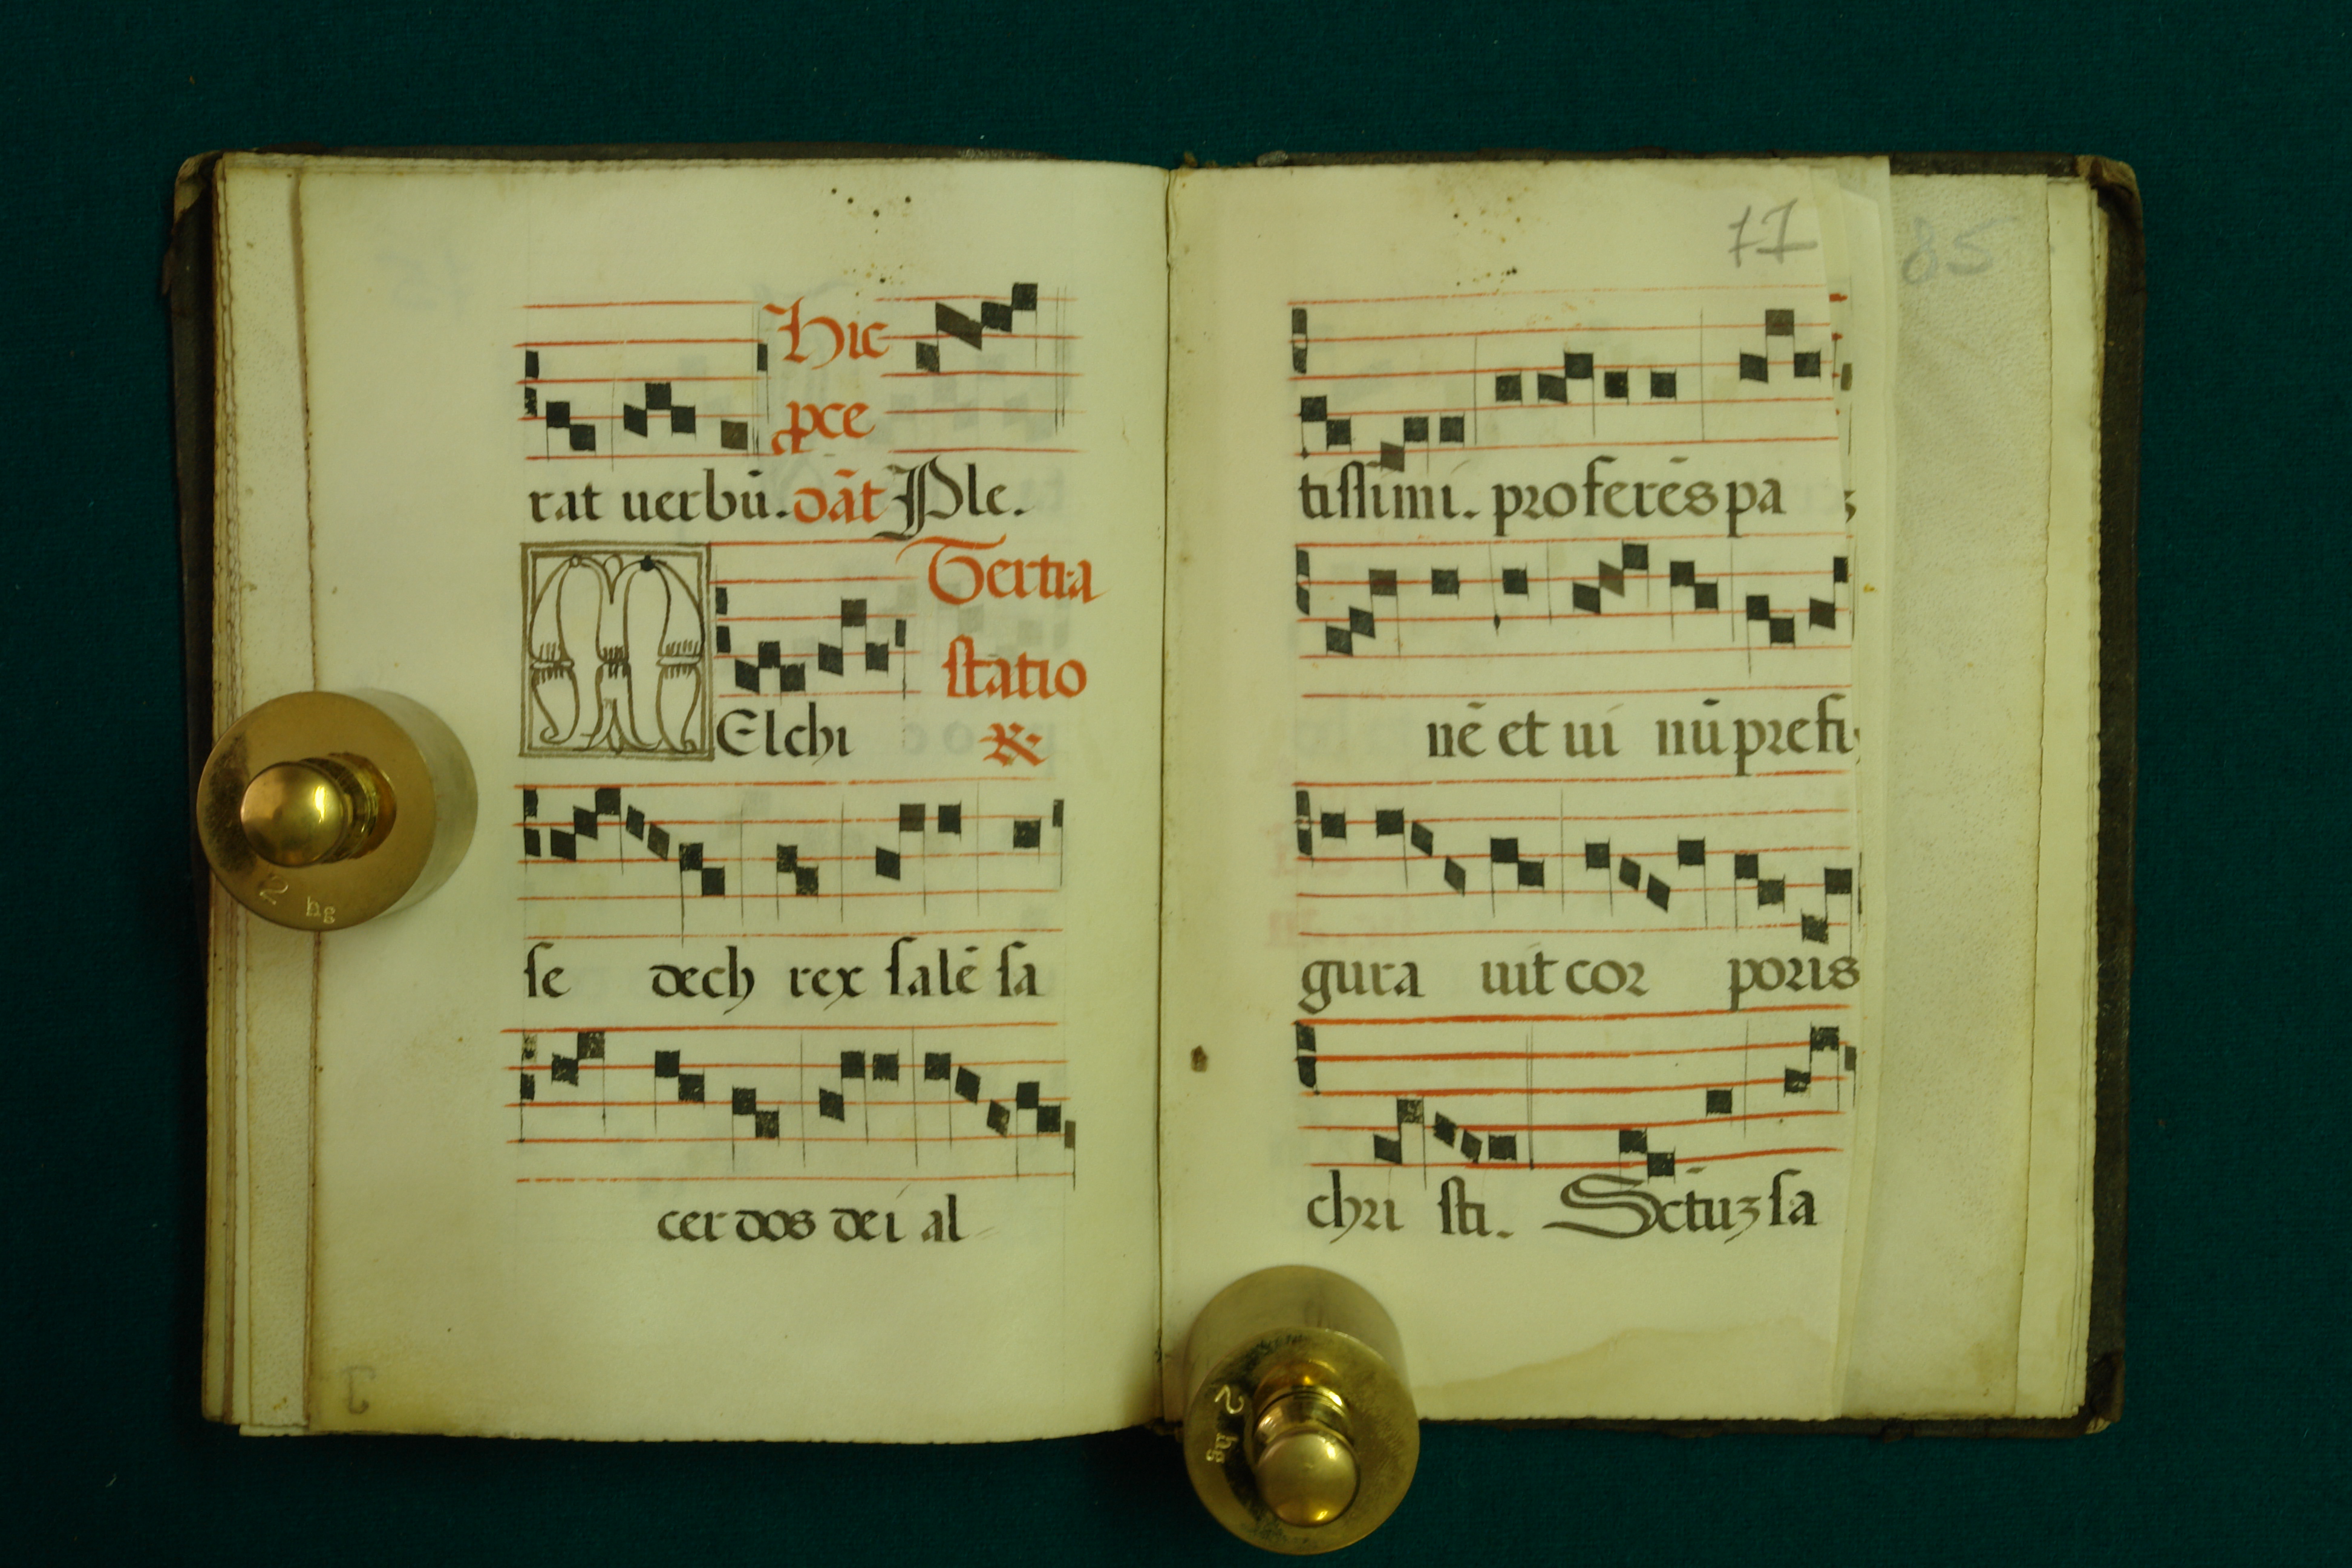 Hic
p̄ce
rat uerbū. dāt Ple.
Tertia
statio
MElchi ℟
se dech rex salē sa
cer dos dei al
17
85
tissimi. proferēs pa
nē et ui nū prefi
gura uit cor poris
chri sti. Sctūʒ sa
2 hg
2 hg